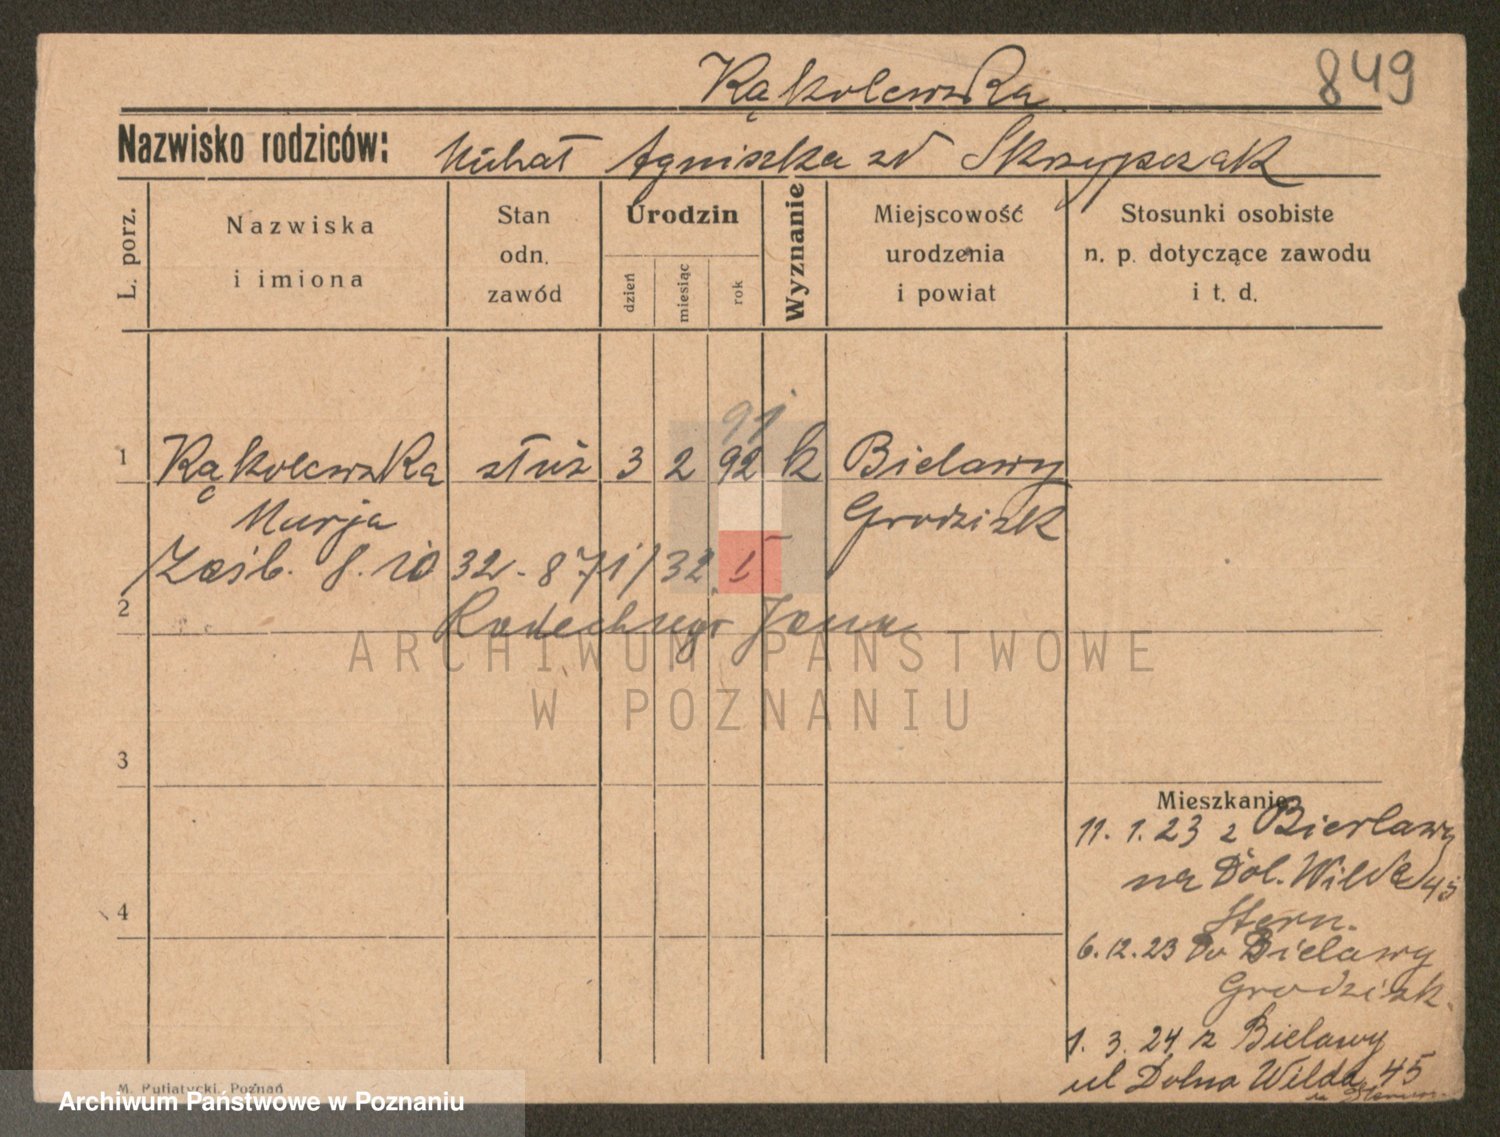 849
Kąkolewska
Nazwisko rodziców: Michał Agniszka zd Skrzypczak
L. porz.
Nazwiska
i imiona
Stan
odn.
zawód
Urodzin
dzień
miesiąc
rok
Wyznanie
Miejscowość
urodzenia
i powiat
Stosunki osobiste
n. p. dotyczące zawodu
i t. d.
91
1 Kąkolewska służ 3 2 92 k Bielawy
Marja Grodzisk
Zaśb. 8. 10 32 - 871/32 I
2
Jana
ARCHIWUM PAŃSTWOWE
W POZNANIU
3
Mieszkanie
11. 1. 23 z Bierlawy
na Dol. Wilda 45
Stern.
4
6. 12. 23 Do Bielawy
Grodzisk.
1. 3. 24 z Bielawy
ul Dolna Wilda 45
M. Putiatycki, Poznań
Archiwum Państwowe w Poznaniu